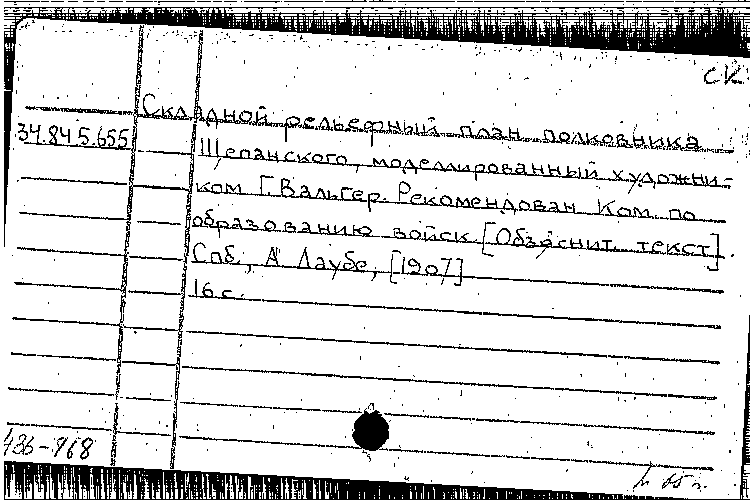 СК
Складной рельефный план полковника
34.84.5.655
Щепанского, моделлированный художни-
ком Г. Вальтер. Рекомендован Ком. по
образованию войск. [Объяснит. текст].
Спб., А. Лаубе, [1907]
16 с.
436-968